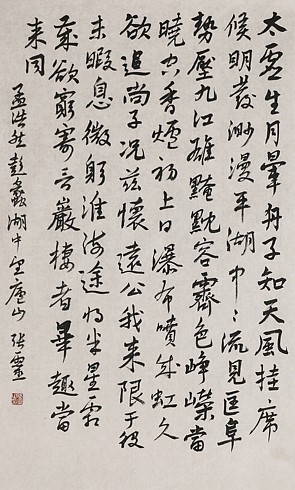 太虛生月暈舟子知天風挂席
候明發渺漫平湖中〻流見匡阜
勢壓九江雄黤黕容霽色崢嶸當
曉空香爐初上日瀑布噴成虹久
欲追尚子況茲懷遠公我来限于役
未暇息微躬淮海途將半星霜
歲欲窮寄言巖棲者畢趣當
来同
孟浩然彭蠡湖中望廬山 張